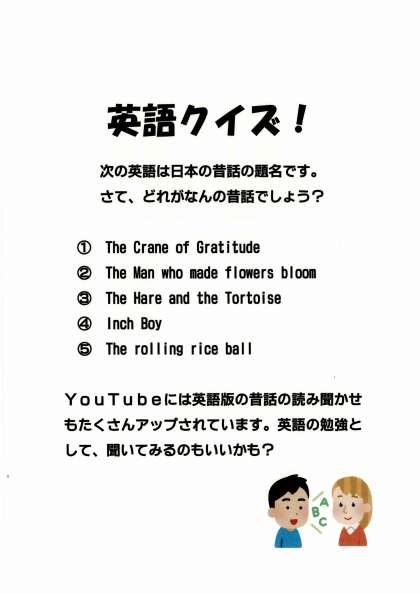 英語クイズ！
次の英語は日本の昔話の題名です。
さて、どれがなんの昔話でしょう？
① The Crane of Gratitude
② The Man who made flowers bloom
③ The Hare and the Tortoise
④ Inch Boy
⑤ The rolling rice ball
ＹｏｕＴｕｂｅには英語版の昔話の読み聞かせ
もたくさんアップされています。英語の勉強と
して、聞いてみるのもいいかも？
A
B
C